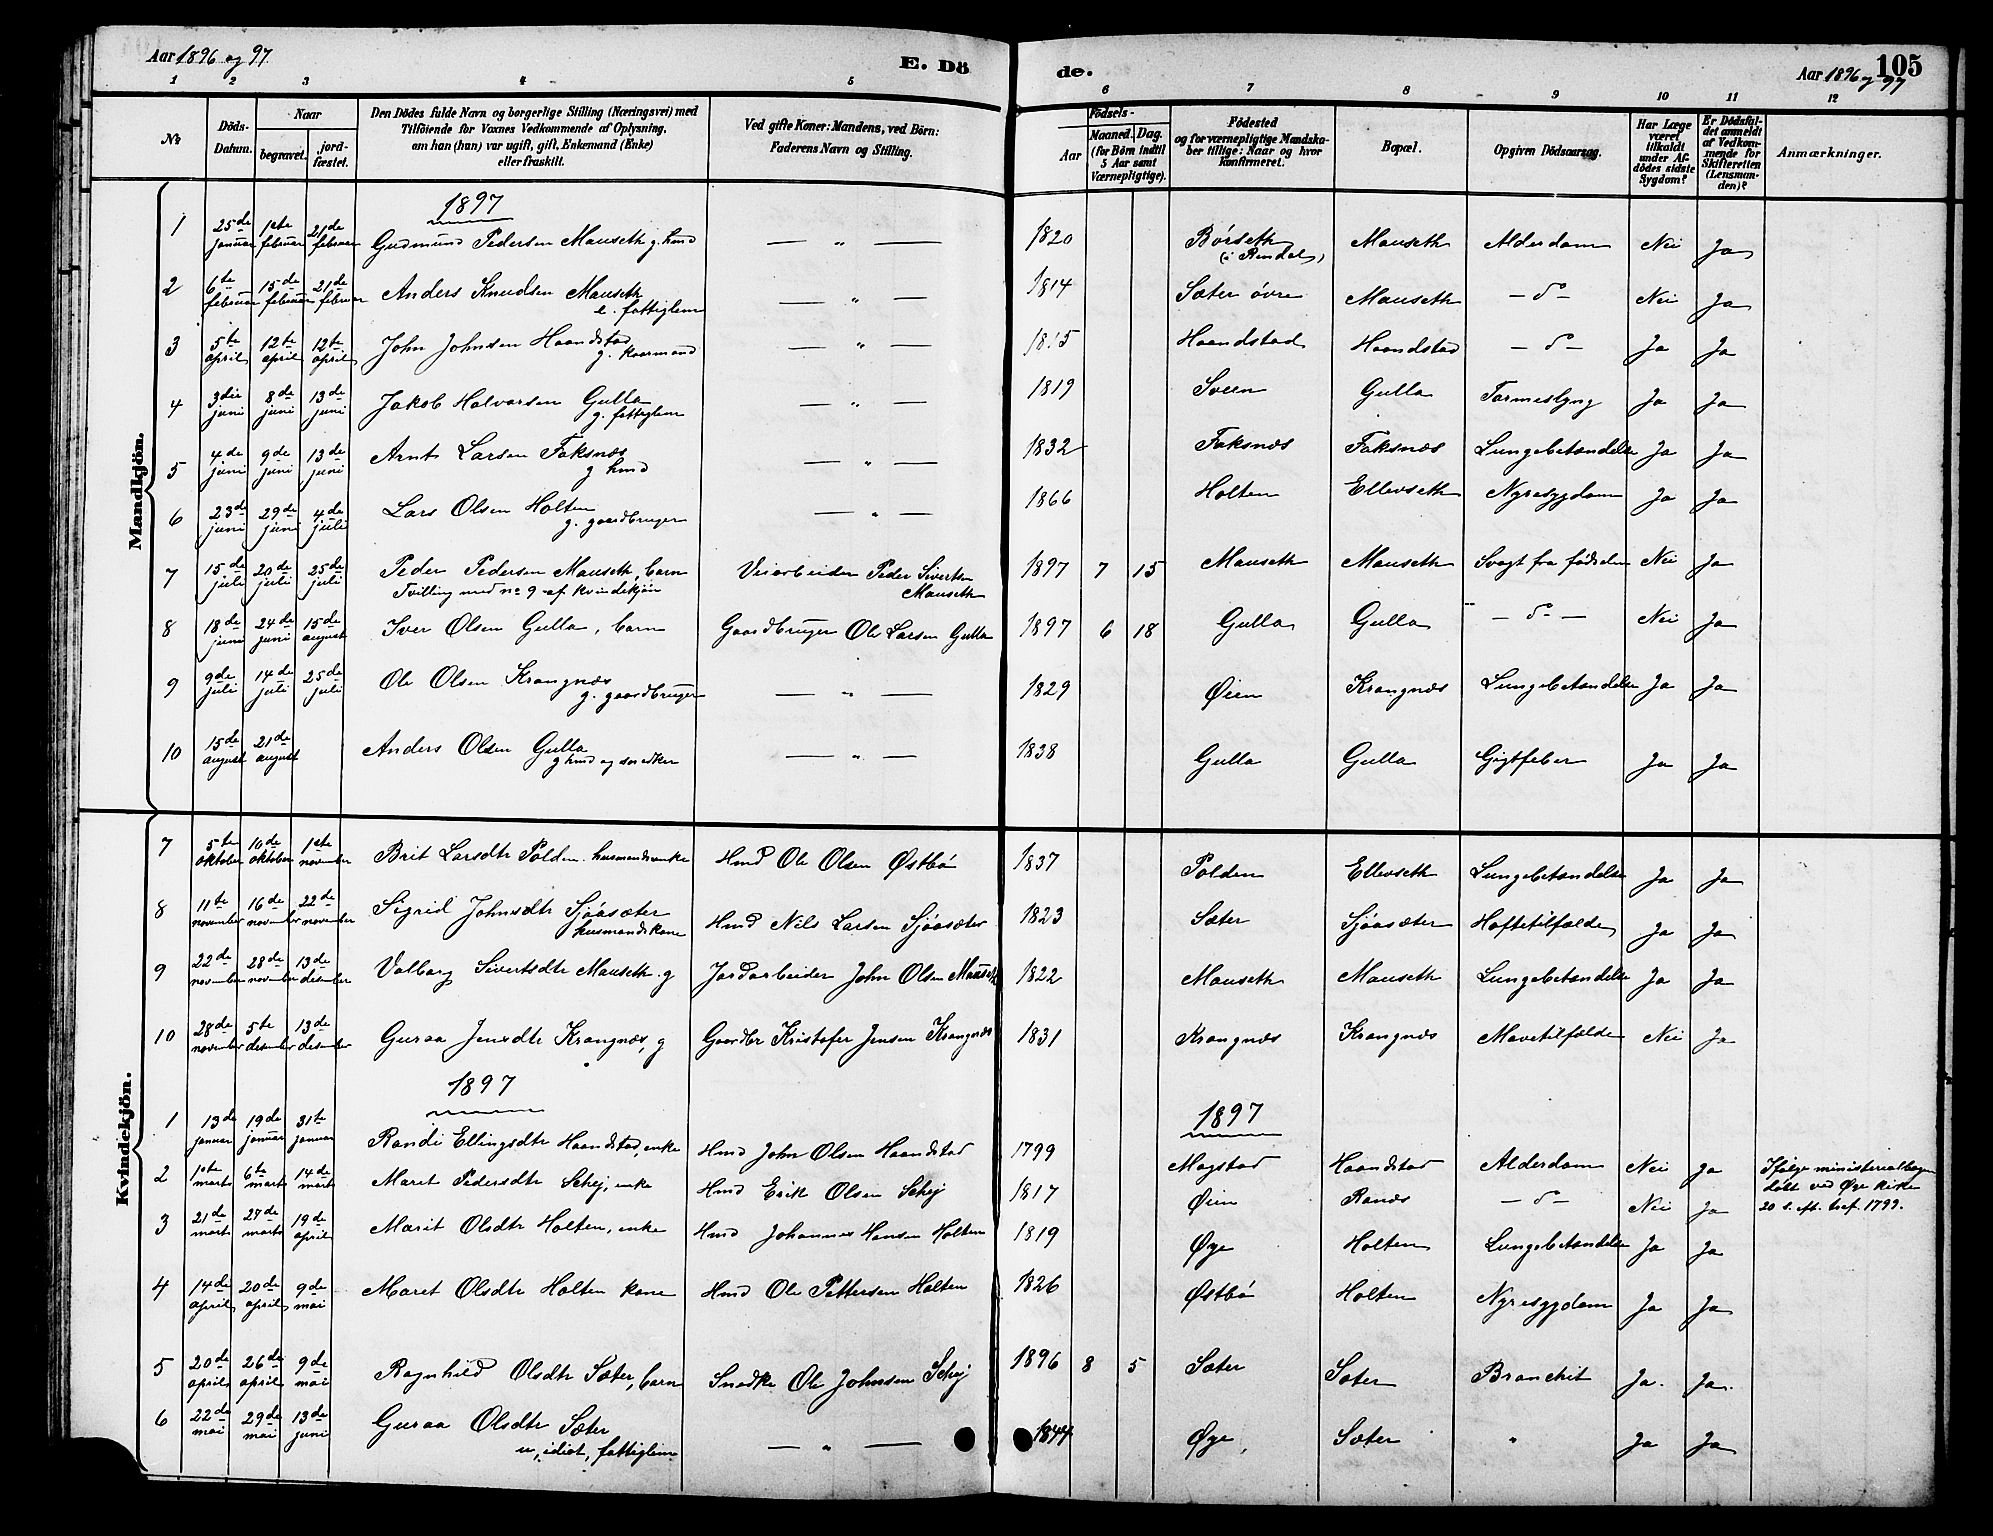 Aar 1896 og 97.
E. Dö
de.
Aar 1896 og 97
105
1 2 3 4 5 6 7 8 9 10 11 12
No
Döds-Datum.
Naar
begravet.
jordfæstet.
Den Dödes fulde Navn og borgerlige Stilling (Næringsvei) med
Tilföiende for Voxnes Vedkommende af Oplysning,
om han (hun) var ugift, gift, Enkemand (Enke)
eller fraskilt.
Ved gifte Koner: Mandens, ved Börn:
Faderens Navn og Stilling.
Födsels-
Aar
Maaned. Dag.
(for Börn indtil
5 Aar samt
Værnepligtige).
Födested
og for værnepligtige Mandska-
ber tillige: Naar og hvor
konfirmeret.
Bopæl.
Opgiven Dödsaarsag.
Har Læge
været
tilkaldt
under Af-
dödes sidste
Sygdom?
Er Dödsfal-
det anmeldt
af Vedkom-
mende for
Skifteretten
(Lensman-
den)?
Anmærkninger.
Mandkjön.
1897
1 25de januar 1ste februar 21de februar Gudmund Pedersen Mauseth g. hmd — " — 1820 Börseth (i Rindal) Mauseth Alderdom Nei Ja
2 6te februar 15de februar 21de februar Anders Knudsen Mauseth e. fattiglem — " — 1814 Sæter övre Mauseth — d° — Nei Ja
3 5te april 12te april 12te april John Johnsen Haandstad g. kaarmand — " — Haandstad Haandstad — d° — Ja Ja
4 3die juni 8de juni 13de juni Jakob Halvorsen Gulla g. fattiglem — " — 1819 Sveen Gulla Tarmeslyng Ja Ja
5 4de juni 9de juni 13de juni Arnt Larsen Faksnæs g hmd — " — 1832 Faksnæs Faksnæs Lungebetændelse Ja Ja
6 23d juni 29de juni 4de juli Lars Olsen Holten g. gaardbruger — " — 1866 Holten Ellevseth Nyresygdom Ja Ja
7 15de juli 20de juli 25de juli Peder Pedersen Mauseth, barn Veiarbeider Peder Sivertsen 1897 7 15 Mauseth Mauseth Svagt fra fødselen Nei Ja
Tvilling med no 9 af kvindekjön Mauseth
8 18de juni 24de juni 15de august Iver Olsen Gulla, barn Gaardbruger Ole Larsen Gulla 1897 6 18 Gulla Gulla — d° — Nei Ja
9 9de juli 14de juli 25de juli Ole Olsen Krangnæs g. gaardbruger — " — 1829 Øien Krangnæs Lungebetændelse Ja Ja
10 15de august 21de august Anders Olsen Gulla g hmd og snedker — " — 1838 Gulla Gulla Gigtfeber Ja Ja
Kvindekjön.
7 5te oktober 10de oktober 1ste november Brit Larsdtr Polden. husmandsenke Hmd Ole Olsen Østbö 1837 Polden Ellevseth Lungebetændelse Ja Ja
8 11te november 16de november 22de november Sigrid Johnsdtr Sjöasæter husmandskone Hmd Nils Larsen Sjöasæter 1823 Sæter Sjöasæter Hoftetilfælde Ja Ja
9 22de november 28de november 13de desember Valborg Sivertsdtr Mauseth. g Jordarbeider John Olsen Mauseth 1822 Mauseth Mauseth Lungebetændelse Ja Ja
10 28de november 5te desember 13de desember Guraa Jensdtr Krangnæs, g Gaardbr Kristofer Jensen Krangnæs 1831 Krangnæs Krangnæs Mavetilfælde Nei Ja
1897 1897
1 13de januar 19de januar 31te januar Randi Ellingsdtr Haandstad, enke Hmd John Olsen Haandstad 1799 Magstad Haandstad Alderdom Nei Ja Ifølge ministerialbogen
døbt ved Øye kirke
20 s. eft. tref. 1799.
2 1ste marts 6te marts 14de marts Maret Pedersdtr Schej, enke Hmd Erik Olsen Schej 1817 Øien Ranæs — d° — Nei Ja
3 21de marts 27de marts 19de april Marit Olsdtr Holten, enke Hmd Johannes Hansen Holten 1819 Øye Holten Lungebetændelse Ja Ja
4 14de april 20de april 9de mai Maret Olsdtr Holten kone Hmd Ole Pettersen Holten 1826 Østbö Holten Nyresygdom Ja Ja
5 20de april 26de april 9de mai Ragnhild Olsdtr Sæter, barn Snedke Ole Johnsen Schej 1896 8 5 Sæter Sæter Bronchit Ja. Ja.
6 22de mai 29de mai 13de juni Guraa Olsdtr Sæter u, idiot, fattiglem — " — 1844 Øye, Sæter " Ja Ja